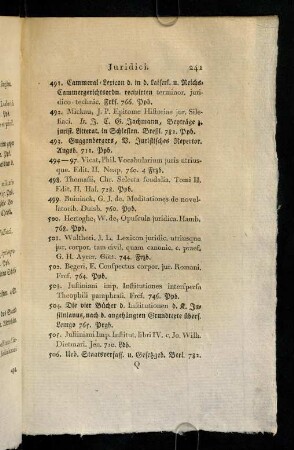 Juridici. 241
491. Cammeral-Lexicon d. in d. kaiserl. u. Reichs-
Cammergerichtsordn. recipirten terminor. juri-
dico-technic. Frkf. 766. Ppb.
492. Michau, J. P. Epitome Historiae jur. Sile-
siaci. It. J. C. G. Jachmann, Beyträge z.
jurist. Litterat. in Schlesien. Bresl. 782. Ppb.
493. Guggenbergers, V. Juristisches Repertor.
Augsb. 718. Ppb.
494—97. Vicat, Phil. Vocabularium juris utrius-
que. Edit. II. Neap. 760. 4 Frzb.
498. Thomasii, Chr. Selecta feudalia. Tomi II.
Edit. II. Hal. 728. Ppb.
499. Buininck, G. J. de, Meditationes de novel-
latorib. Duisb. 760. Ppb.
500. Hertoghe, W. de, Opuscula juridica. Hamb.
768. Ppb.
501. Waltheri, J. L. Lexicon juridic. utriusque
jur. corpor. tam civil. quam canonic. c. praef.
G. H. Ayrer. Gött. 744. Frzb.
502. Begeri, E. Conspectus corpor. jur. Romani.
Fref. 764. Ppb.
503. Justiniani imp. Institutiones interspersa
Theophili paraphrasi. Fref. 746. Ppb.
504. Die vier Bücher d. Institutionen d. K. Ju-
stinianus, nach d. angehängten Grundtexte übers.
Lemgo 765. Przb.
505. Justiniani Imp. Institut. libri IV. c. Jo. Wilh.
Dietmari. Jen. 710. Ldb.
506. Ueb. Staatsverfass. u. Gesetzgeb. Berl. 782.
Q